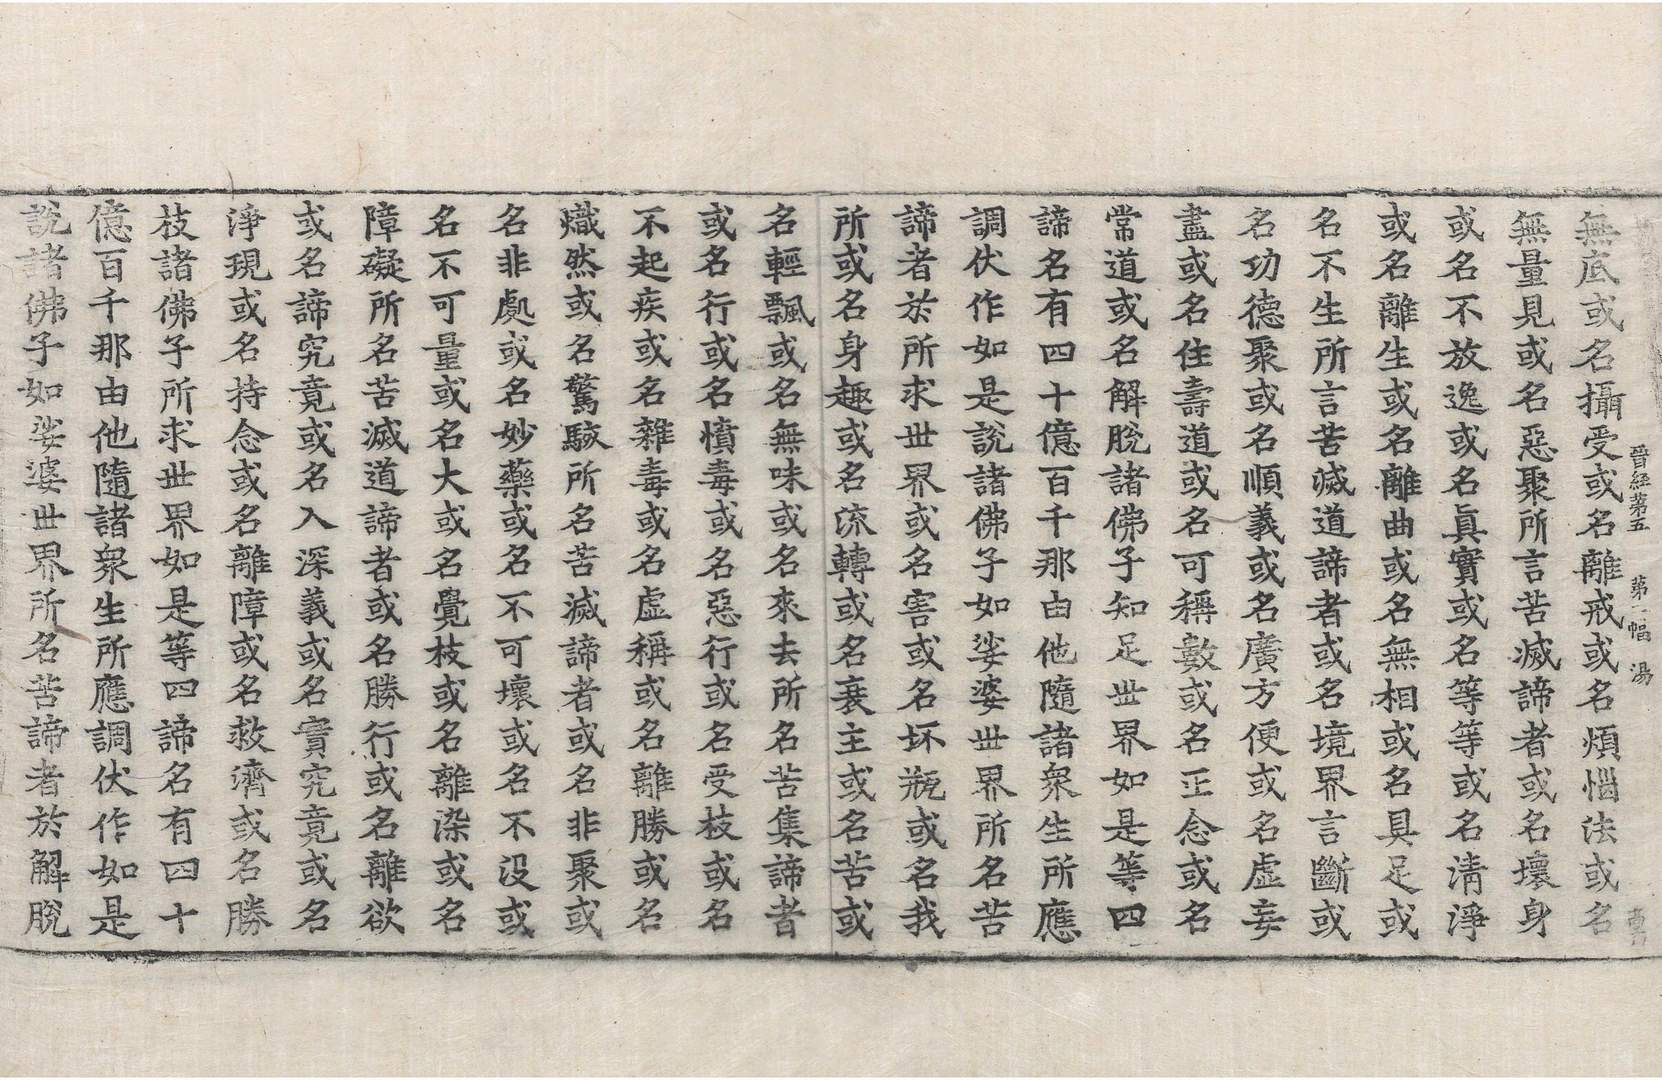 晉経第五 第二幅 湯
無底或名攝受或名離戒或名煩惱法或名
無量見或名惡聚所言苦滅諦者或名壞身
或名不放逸或名眞實或名等等或名淸淨
或名離生或名離曲或名無相或名具足或
名不生所言苦滅道諦者或名境界言斷或
名功德聚或名順義或名廣方便或名虛妄
盡或名住壽道或名可稱數或名正念或名
常道或名解脫諸佛子知足世界如是等四
諦名有四十億百千那由他隨諸衆生所應
調伏作如是說諸佛子如娑婆世界所名苦
諦者於所求世界或名害或名坏瓶或名我
所或名身趣或名流轉或名衰主或名苦或
名輕飄或名無味或名來去所名苦集諦者
或名行或名憤毒或名惡行或名受枝或名
不起疾或名雜毒或名虛稱或名離勝或名
熾然或名驚駭所名苦滅諦者或名非聚或
名非處或名妙藥或名不可壞或名不没或
名不可量或名大或名覺枝或名離染或名
障礙所名苦滅道諦者或名勝行或名離欲
或名諦究竟或名入深義或名實究竟或名
淨現或名持念或名離障或名救濟或名勝
枝諸佛子所求世界如是等四諦名有四十
億百千那由他隨諸衆生所應調伏作如是
說諸佛子如娑婆世界所名苦諦者於解脫